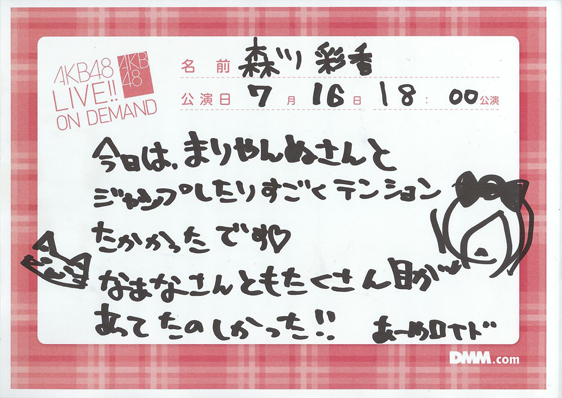 AKB48
LIVE!!
ON DEMAND
AKB
48
名前 森川 彩香
公演日 7月16日 18:00公演
今日は、まりやんぬさんと
ジャンプしたりすごくテンション
たかかったです♡
なぁなさんともたくさん目が
あってたのしかった!!
あーめロイド
DMM.com